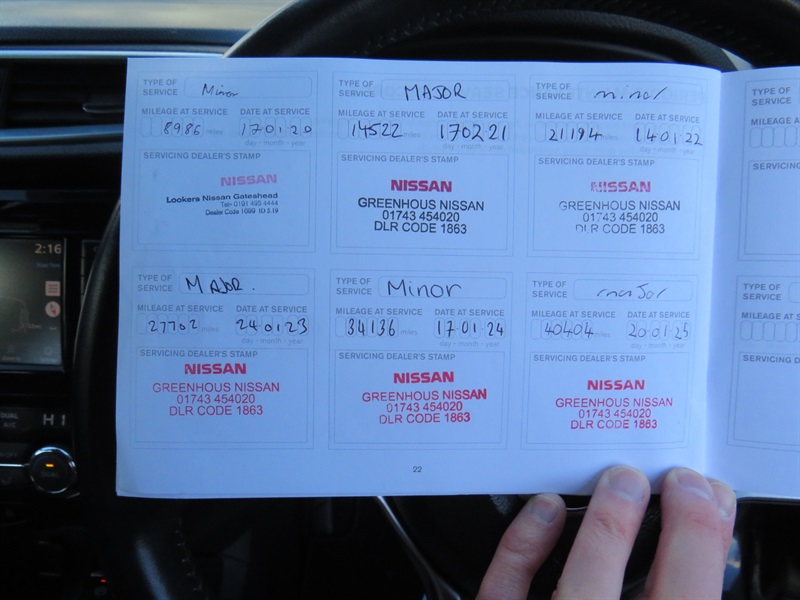 TYPE OF SERVICE Minor
MILEAGE AT SERVICE DATE AT SERVICE
8986 miles 17 01 20
day - month - year
SERVICING DEALER'S STAMP
NISSAN
Lookers Nissan Gateshead
Tel: 0191 495 4444
Dealer Code 1099
TYPE OF SERVICE MAJOR
MILEAGE AT SERVICE DATE AT SERVICE
14522 miles 17 02 21
day - month - year
SERVICING DEALER'S STAMP
NISSAN
GREENHOUS NISSAN
01743 454020
DLR CODE 1863
TYPE OF SERVICE minor
MILEAGE AT SERVICE DATE AT SERVICE
21194 miles 14 01 22
day - month - year
SERVICING DEALER'S STAMP
NISSAN
GREENHOUS NISSAN
01743 454020
DLR CODE 1863
TYPE OF SERVICE MAJOR.
MILEAGE AT SERVICE DATE AT SERVICE
27702 miles 24 01 23
day - month - year
SERVICING DEALER'S STAMP
NISSAN
GREENHOUS NISSAN
01743 454020
DLR CODE 1863
TYPE OF SERVICE Minor
MILEAGE AT SERVICE DATE AT SERVICE
34136 miles 17 01 24
day - month - year
SERVICING DEALER'S STAMP
NISSAN
GREENHOUS NISSAN
01743 454020
DLR CODE 1863
TYPE OF SERVICE major
MILEAGE AT SERVICE DATE AT SERVICE
40404 miles 20 01 25
day - month - year
SERVICING DEALER'S STAMP
NISSAN
GREENHOUS NISSAN
01743 454020
DLR CODE 1863
22
TYPE OF
SERVICE
MILEAGE A
SERVICING
TYPE OF
SERVICE
MILEAGE AT
SERVICING DE
2:16
DUAL
A/C
HI